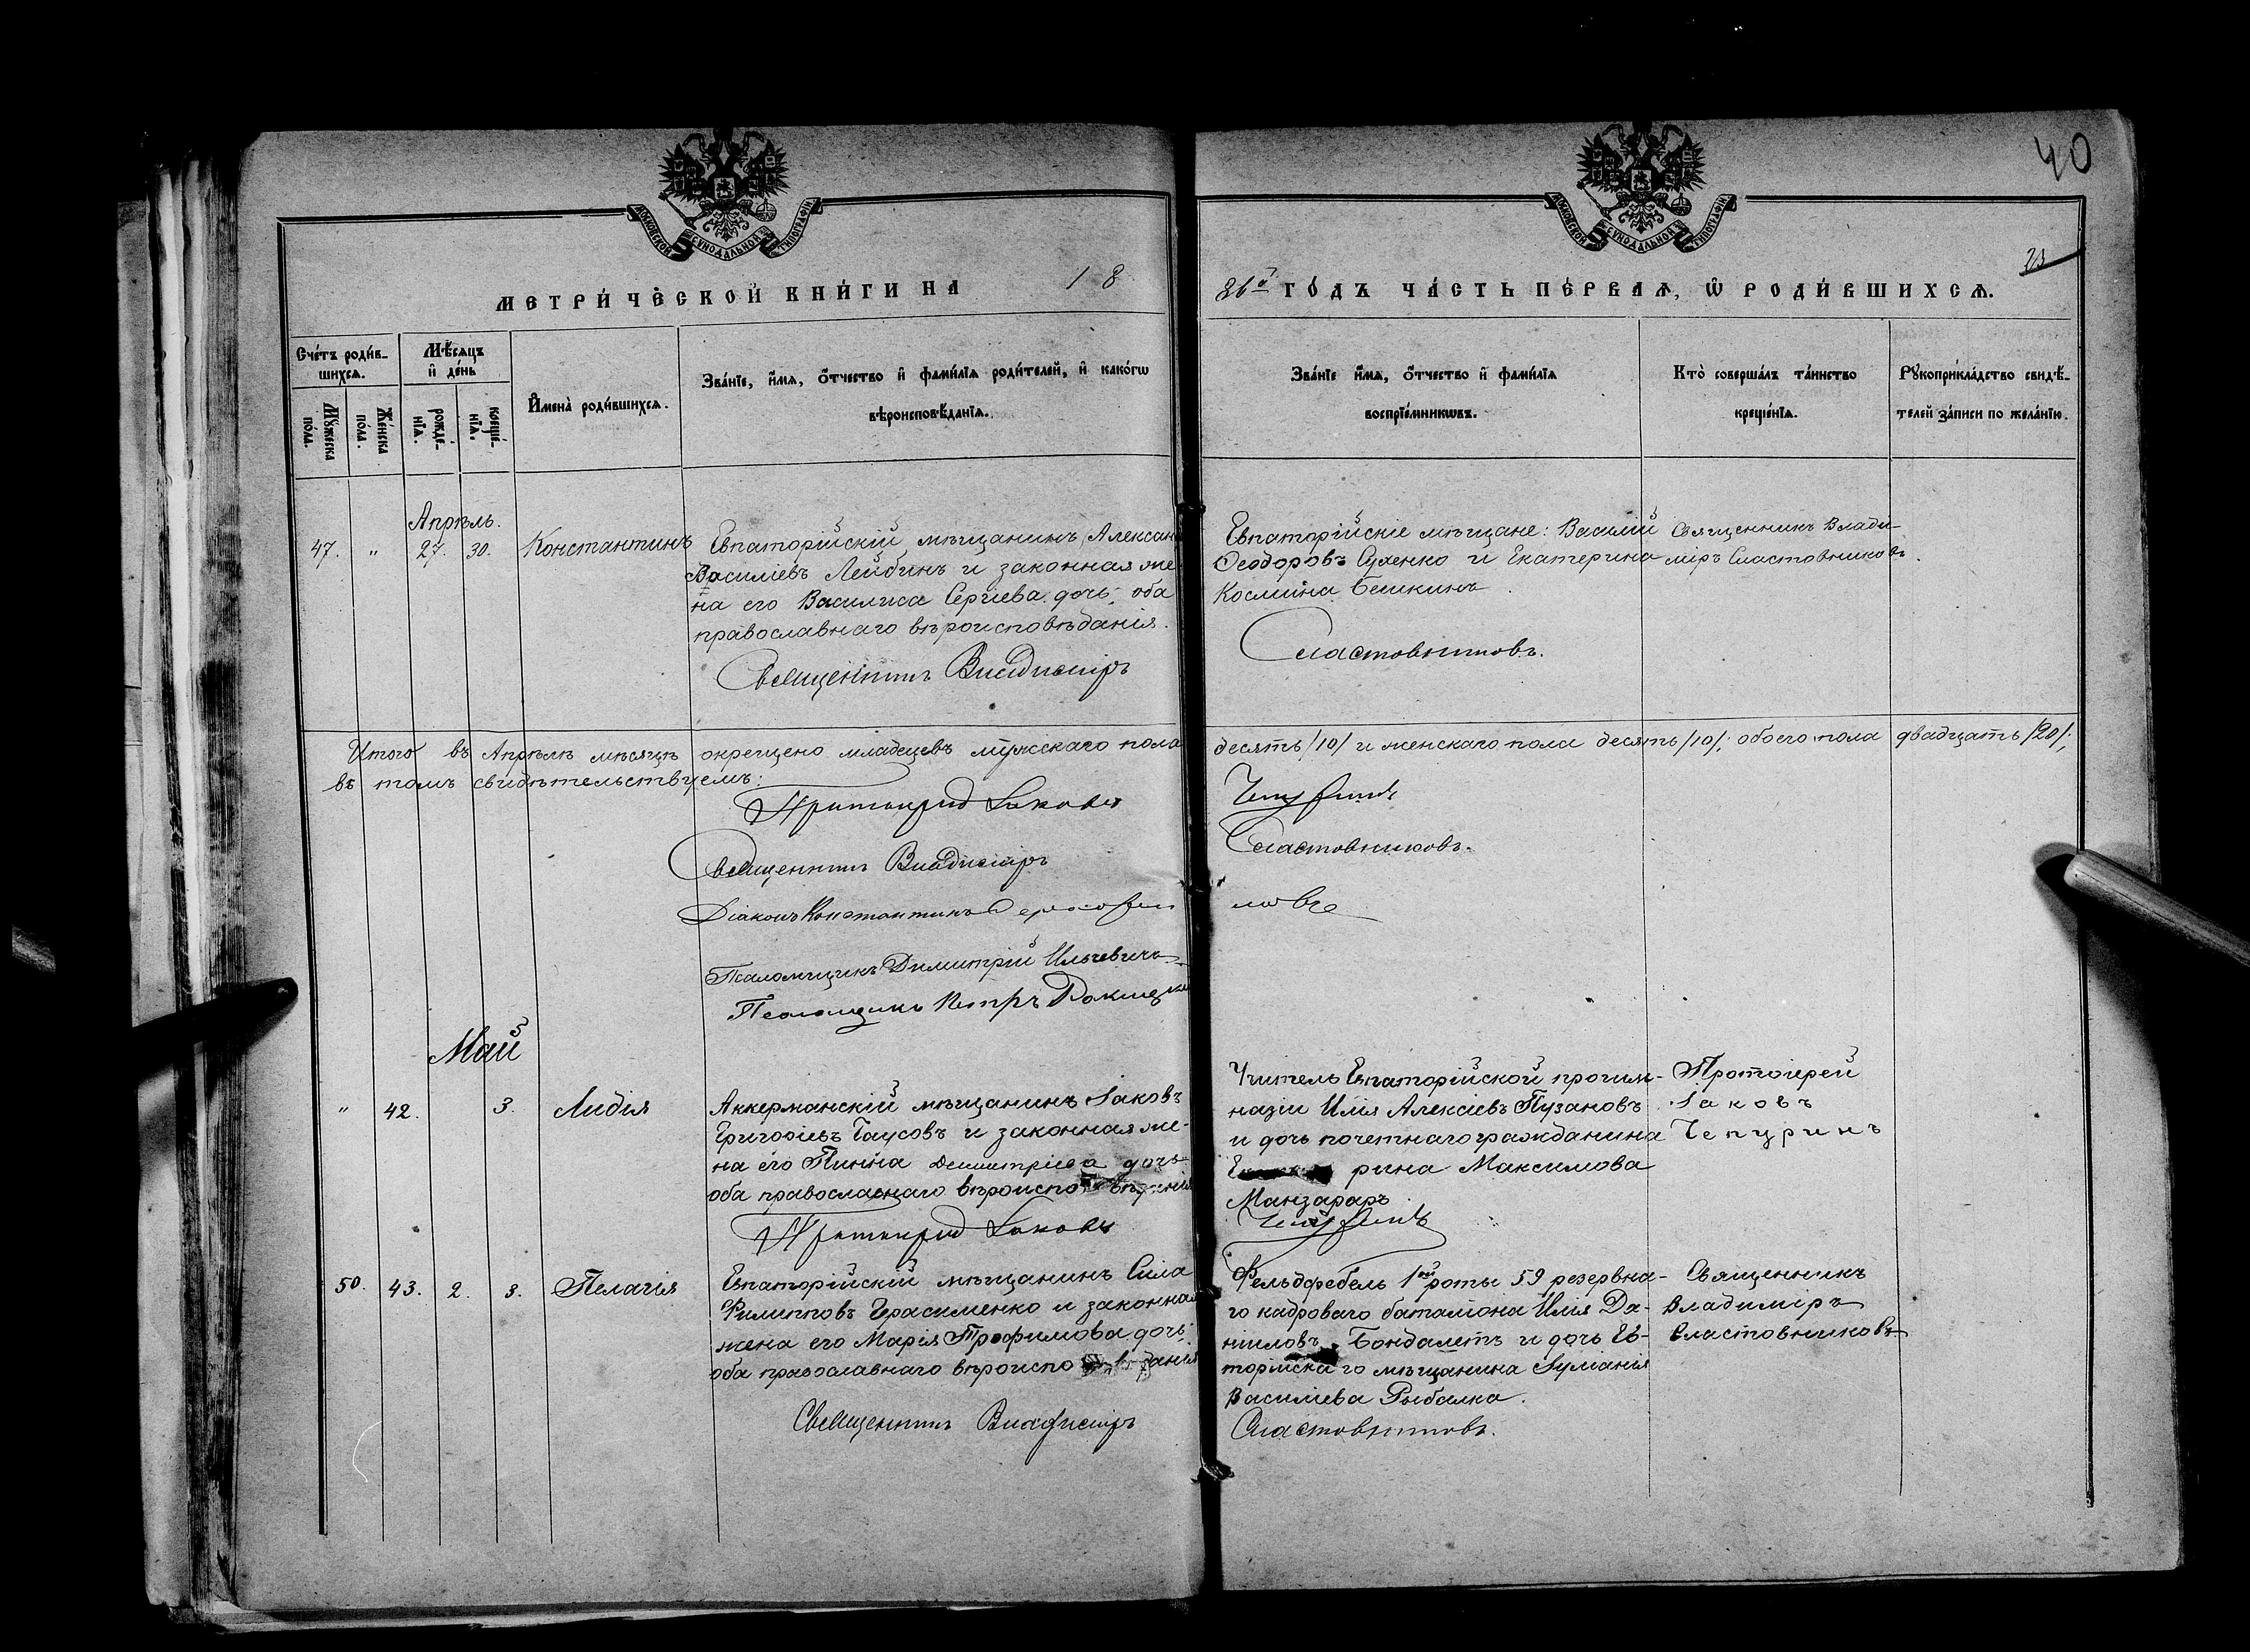 40
МОСКОВСКОЙ СѴНОДАЛЬНОЙ ТИПОГРАФІИ
МОСКОВСКОЙ СѴНОДАЛЬНОЙ ТИПОГРАФІИ
23
МЕТРИ́ЧЕСКОЙ КНИ́ГИ НА 18
86й ГО́ДЪ ЧА́СТЬ ПЕ́РВАѦ, Ѡ РОДИ́ВШИХСѦ.
Сче́тъ роди́в-
шихсѧ.
Мꙋжеска по́ла.
Же́нска по́ла.
Мѣ́сѧцъ
и҆ де́нь
рожде́-нїѧ.
креще́-нїѧ.
И҆мена̀ роди́вшихсѧ.
Зва́нїе, и҆́мѧ, ѻ҆́тчество и҆ фами́лїѧ роди́телей, и҆ како́гѡ
вѣроисповѣ́данїѧ.
Зва́нїе и҆́мѧ, ѻ҆́тчество и҆ фами́лїѧ
воспрїе́мникѡвъ.
Кто̀ соверша́лъ та́инство
креще́нїѧ.
Рꙋкоприкла́дство свидѣ́-
телей за́писи по жела́нїю.
Апрѣль.
47. " 27. 30. Константинъ
Евпаторійскій мѣщанинъ, Алексан
Василіевъ Лейбинъ и законная же
на его Василиса Сергіева дочь; оба
православнаго вѣроисповѣданія.
Священникъ Владиміръ
Евпаторійскіе мѣщане: Василій
Ѳеодоровъ Сухенко и Екатерина
Косміина Бешкинъ
Сластовниковъ.
Священникъ Влади-
міръ Сластовниковъ.
Итого въ Апрѣлѣ мѣсяцѣ окрещено младецевъ мужескаго пола десять /10/ и женскаго пола десять /10/; обоего пола двадцать /20/;
въ томъ свидѣтельствуемъ:
Протоіерей Іаковъ Чепуринъ
Священникъ Владиміръ Сластовниковъ.
Діаконъ Константинъ
Псаломщикъ Димитрій Ильчевичъ
Псаломщикъ Петръ
Май
" 42. 3. Лидія
Аккерманскій мѣщанинъ Іаковъ
Григоріевъ Гаусовъ и законная же-
на его Пинна Димитріева дочь
оба православнаго вѣроисповѣданія
Протоіерей Іаковъ
Учитель Евпаторійской прогим-
назіи Илія Алексіевъ Пузановъ
и дочь почетнаго гражданина
рина Максимова
Манзараръ
Чепуринъ
Протоіерей
Іаковъ
Чепуринъ
50. 43. 2. 3. Пелагія
Евпаторійскій мѣщанинъ Сила
Филипповъ Герасименко и законная
жена его Марія Трофимова дочь;
оба православнаго вѣроисповѣданія
Священникъ Владиміръ
Фельдфебель 1ой роты 59 резервна-
го кадроваго баталіона Илія Да-
ніиловъ Бондалетъ и дочь Ев-
торійскаго мѣщанина Іуліанія
Василіева Рыбалка.
Сластовниковъ.
Священникъ
Владиміръ
Сластовниковъ